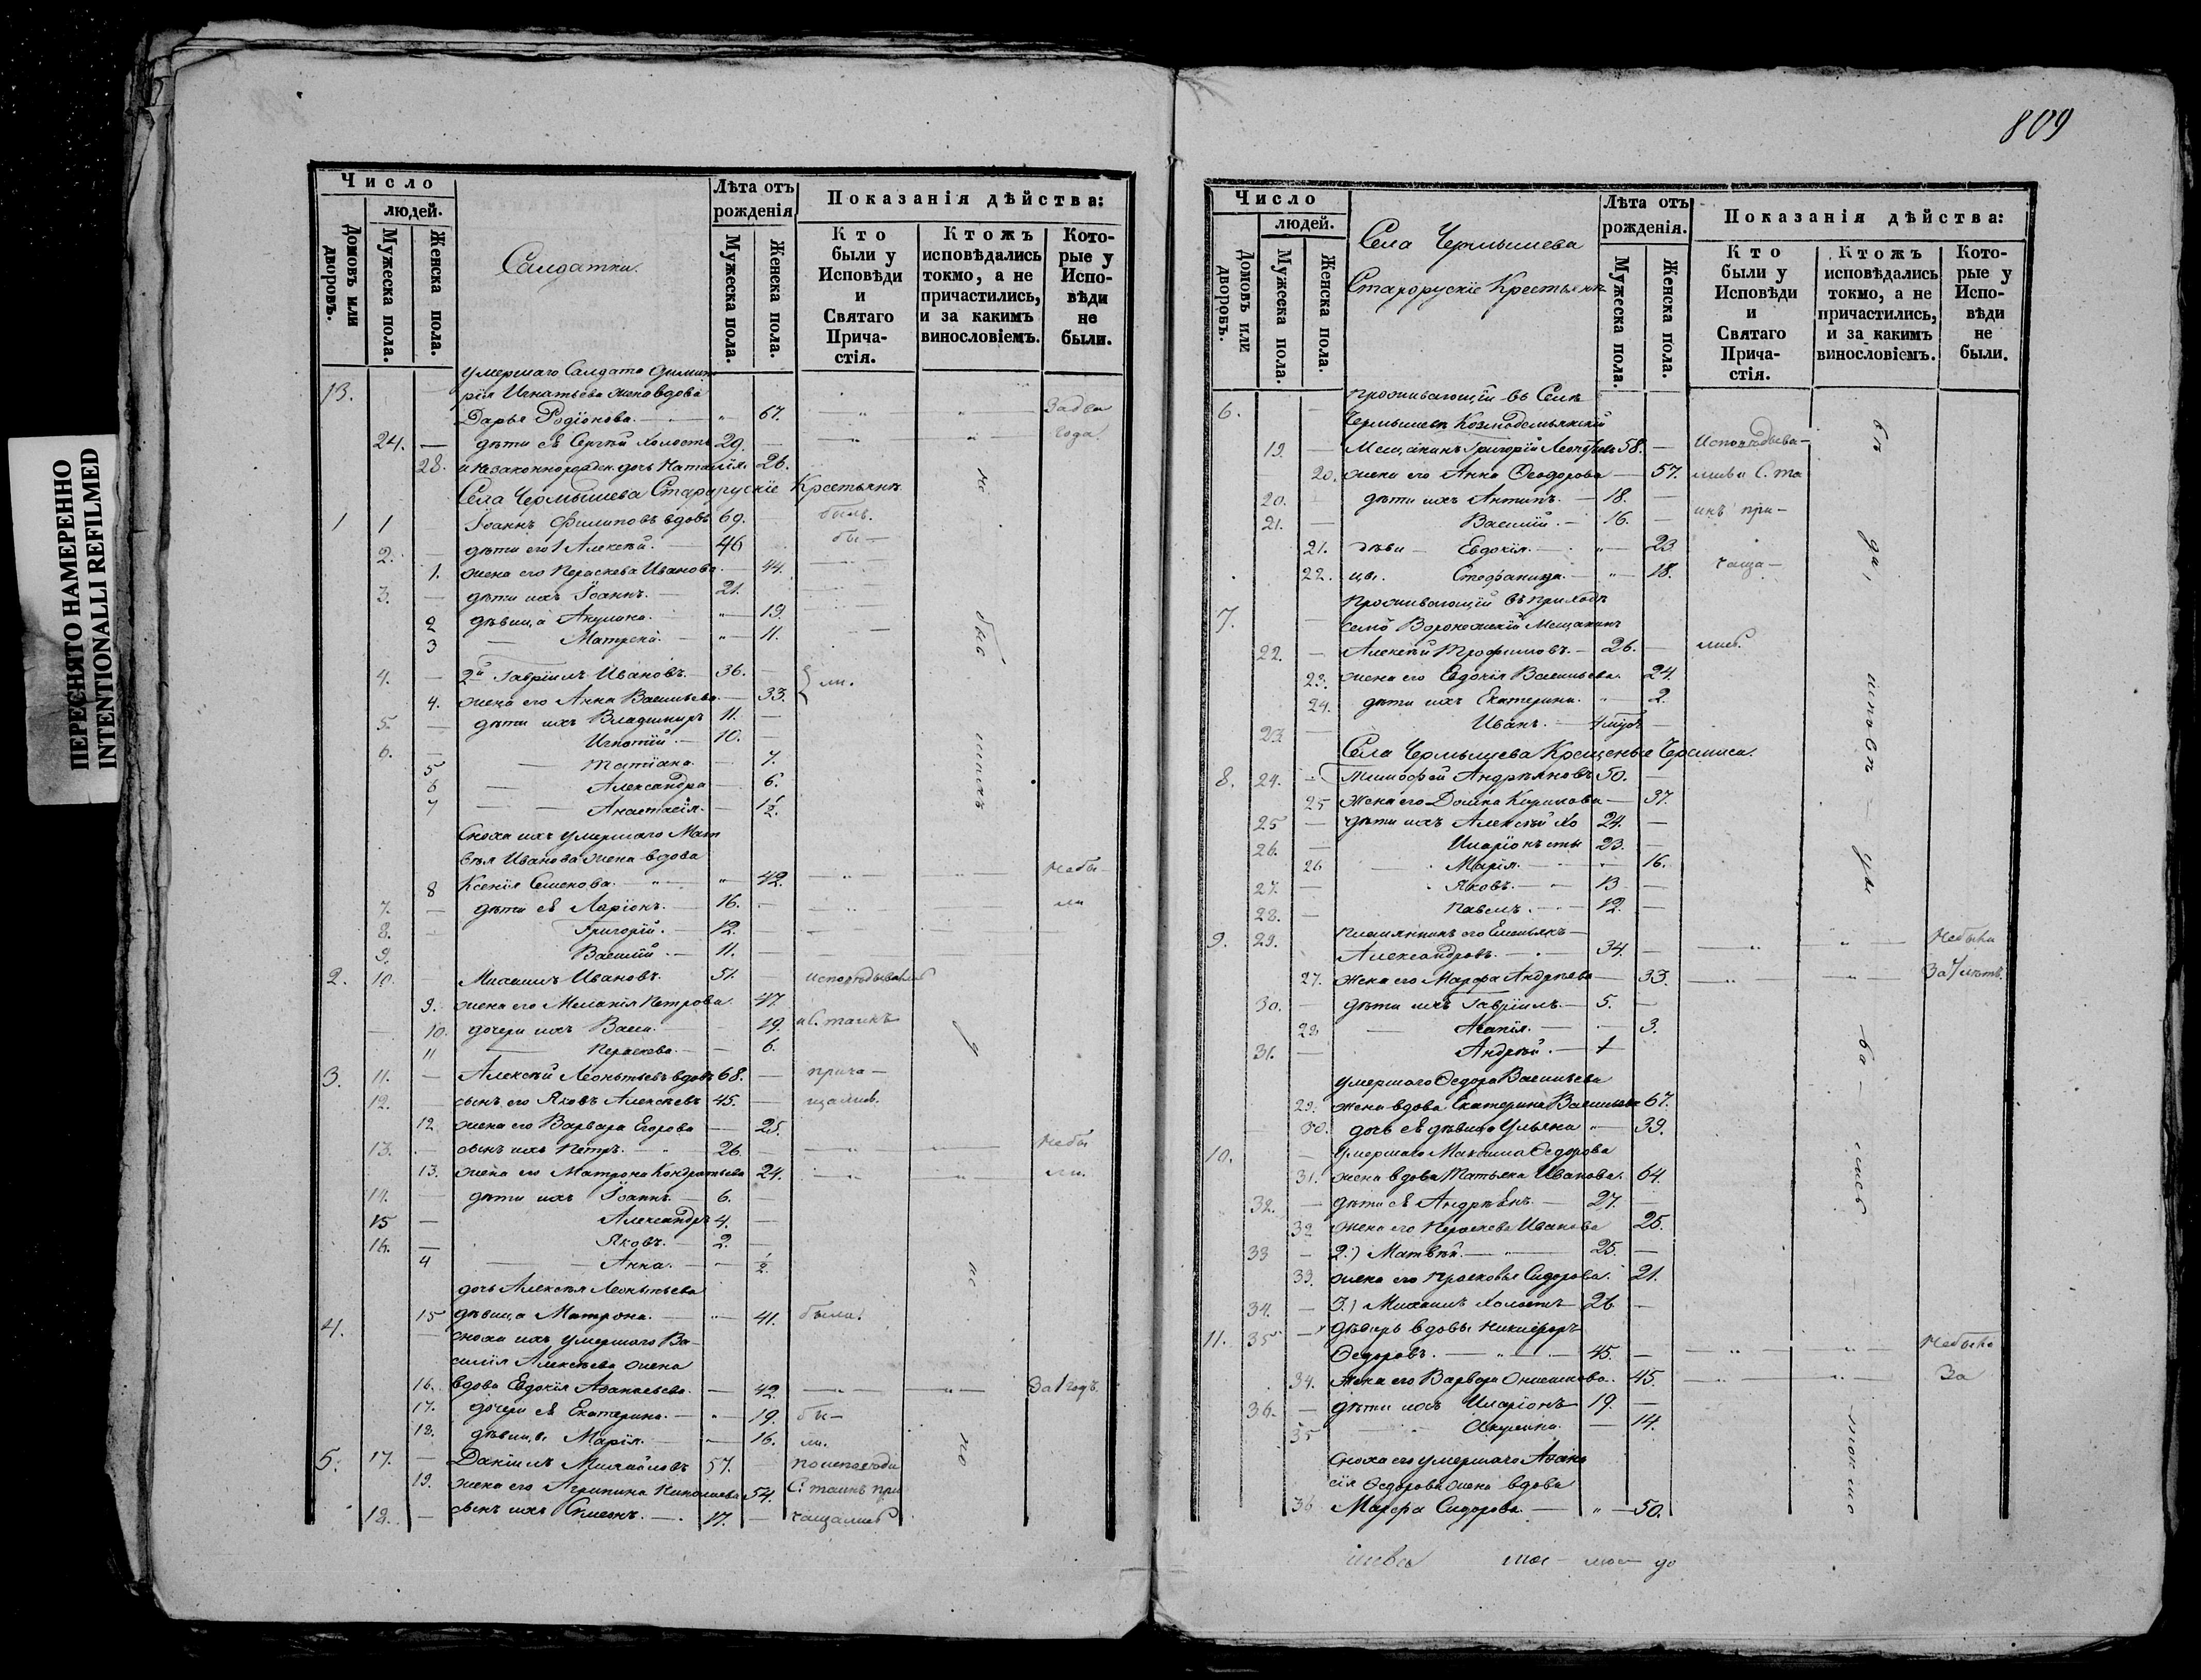 ПЕРЕСНЯТО НАМЕРЕННО
INTENTIONALLI REFILMED
Число
людей.
Домовъ или дворовъ.
Мужеска пола.
Женска пола.
Салдатки.
Лѣта отъ рожденія
Мужеска пола.
Женска пола.
Показанія дѣйства:
Кто были у Исповѣди и Святаго Причастія.
Ктожъ исповѣдались токмо, а не причастились, и за какимъ винословіемъ.
Которые у Исповѣди не были.
умершаго Салдата Димит
13. рія Игнатьева жена вдова
Дарья Родіонова. 67. За два
24. дѣти еѣ Сергѣй холостъ 29. года.
28. и незаконнорожден. дочь Наталія 26.
Села Чермышева Старорускіе Крестьяне
1 1 Іоаннъ Филиповъ вдовъ 69. былъ.
2. дѣти его 1 Алексѣй. 46 бы-
1. жена его Параскева Иванова 44.
3. дѣти ихъ Іоаннъ. 21.
2 дѣвица Акулина. 19.
3 Матрена. 11.
4. 2й Гавріилъ Ивановъ. 36. ли.
4. жена его Анна Васильева 33.
5. дѣти ихъ Владимиръ 11.
6. Игнатій. 10.
5 Татіана. 7.
6 Александра 6.
7 Анастасія. 1/2.
Сноха ихъ умершаго Мат
вѣя Иванова жена вдова
8 Ксенія Семенова. 42. Небы-
7. дѣти еѣ Ларіонъ. 16. ли
8. Григорій. 12.
9. Василій. 11.
2. 10. Михаилъ Ивановъ. 51. исповѣдывались
9. жена его Меланія Петрова. 47.
10. дочери ихъ Васи. 19. и С. таинъ
11 Параскева. 6.
3. 11. Алексѣй Леонтьевъ вдовъ 68. прича-
12. сынъ его Яковъ Алексѣевъ 45. щались.
12 жена его Варвара Егорова 25.
13. сынъ ихъ Петръ. 26. Небы
13. жена его Матрона Кондратьева 24. ли.
14. дѣти ихъ Іоаннъ. 6.
15 Александръ 4.
16. Яковъ. 2.
4 Анна. 1/2.
дочь Алексѣя Леонтьева
15 дѣвица Матрона. 41. была.
4. сноха ихъ умершаго Ва-
силія Алексѣева жена
16. вдова Евдокія Афанасьева. 42. За 1 годъ.
17. дочери еѣ Екатерина. 19. бы-
18. дѣвицы Марія. 16. ли.
5. 17. Даніилъ Михайловъ 57.
19. жена его Агрипина Николаева 54. С. таинъ при
18. сынъ ихъ Симеонъ. 17. чащались
809
Число
людей.
Домовъ или дворовъ.
Мужеска пола.
Женска пола.
Села Чермышева
Старорускіе Крестьяне
Лѣта отъ рожденія.
Мужеска пола.
Женска пола.
Показанія дѣйства:
Кто были у Исповѣди и Святаго Причастія.
Ктожъ исповѣдались токмо, а не причастились, и за какимъ винословіемъ.
Которые у Исповѣди не были.
6. проживающій въ Селѣ
Чермышевѣ Козмодемьянскій
19. Мещанинъ Григорій Леонтьевъ 58. Исповѣдыва-
20. жена его Анна Ѳеодорова 57. лись и С. та
20. дѣти ихъ Антипъ. 18.
21. Василій. 16. инъ при-
21. дѣви Евдокія. 23
22. цы. Стефанида. 18. чаща-
проживающій въ приходѣ
7. семъ Воронежскій Мещанинъ
22. Алексѣй Трофимовъ. 26. лись.
23. жена его Евдокія Васильева. 24.
24. дѣти ихъ Екатерина. 2.
23. Иванъ.
Села Чермышева Крещеные Черемиса.
8. 24. Тимофей Андрѣяновъ 50.
25 Жена его Домна Кирилова 37.
25 дѣти ихъ Алексѣй хо 24.
26. Иларіонъ сты 23.
26 Марія. 16.
27. Яковъ. 13
28. Павелъ. 12.
9. 29. племянникъ его Емельянъ Небыли
Александровъ. 34.
27. Жена его Марфа Андреева 33. За 7 лѣтъ.
30. дѣти ихъ Гавріилъ. 5.
28 Агапія. 3.
31. Андрей. 1
умершаго Ѳедора Васильева
29. жена вдова Екатерина Васильева 67.
30. дочь еѣ дѣвица Ульяна 39.
10. умершаго Максима Ѳедорова
31. жена вдова Татьяна Иванова. 64.
32. дѣти еѣ Андреянъ 27.
32 жена его Параскева Иванова 25.
33 2.) Матвѣй. 25.
33. жена его Прасковья Сидорова. 21.
34. 3.) Михаилъ холостъ 26
11. 35 дѣверь вдовы Никифоръ
Ѳедоровъ. 45. Небыли
34. жена его Варвара Онисимова. 45. За
36. дѣти ихъ Иларіонъ 19.
35 Акулина. 14.
сноха его умершаго Афана
сія Ѳедорова жена вдова
36 Марфа Сидорова. 50.